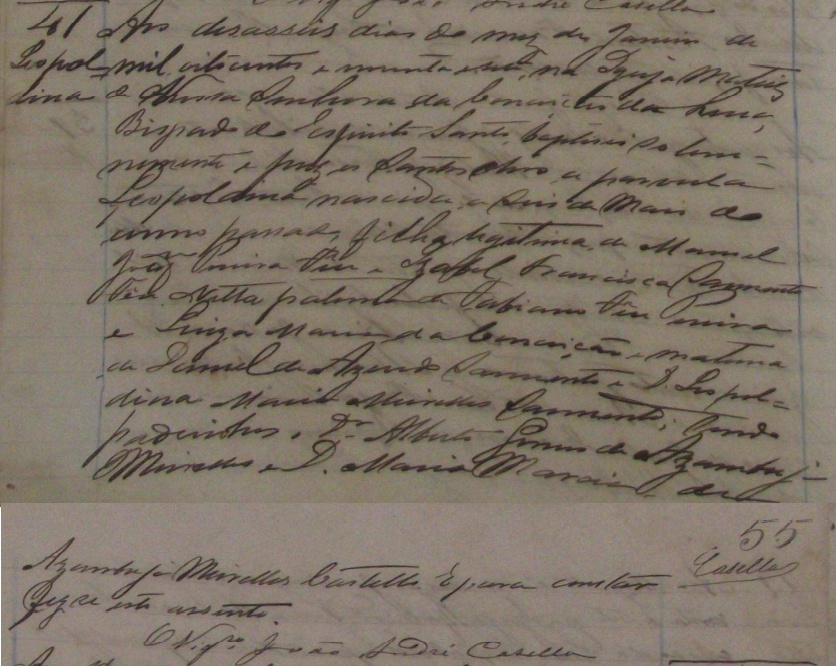 João André Casella
41 Aos desasseis dias do mez de Janeiro de
Leopol- mil oitocentos e noventa e sete, na Igreja Matriz
dina de Nossa Senhora da Conceição da Serra,
Bispado do Espirito Santo, baptisei solem-
nemente e puz os Santos Oleos a parvula
Leopoldina nascida a seis de Maio do
anno passado, filha legitima de Manoel
João Pereira e Izabel Francisca Sarmento
Netta paterna de Fabiano Pereira
e Luiza Maria da Conceição e materna
de Daniel de Azevedo Sarmento e D. Leopol-
dina Maria Meirelles Sarmento; sendo
padrinhos o Dr. Alberto Gomes de Azambuja
Meirelles e D. Maria de
55
Casella
Azambuja Meirelles Castello. E para constar
fiz este assento.
O Vigro João André Casella